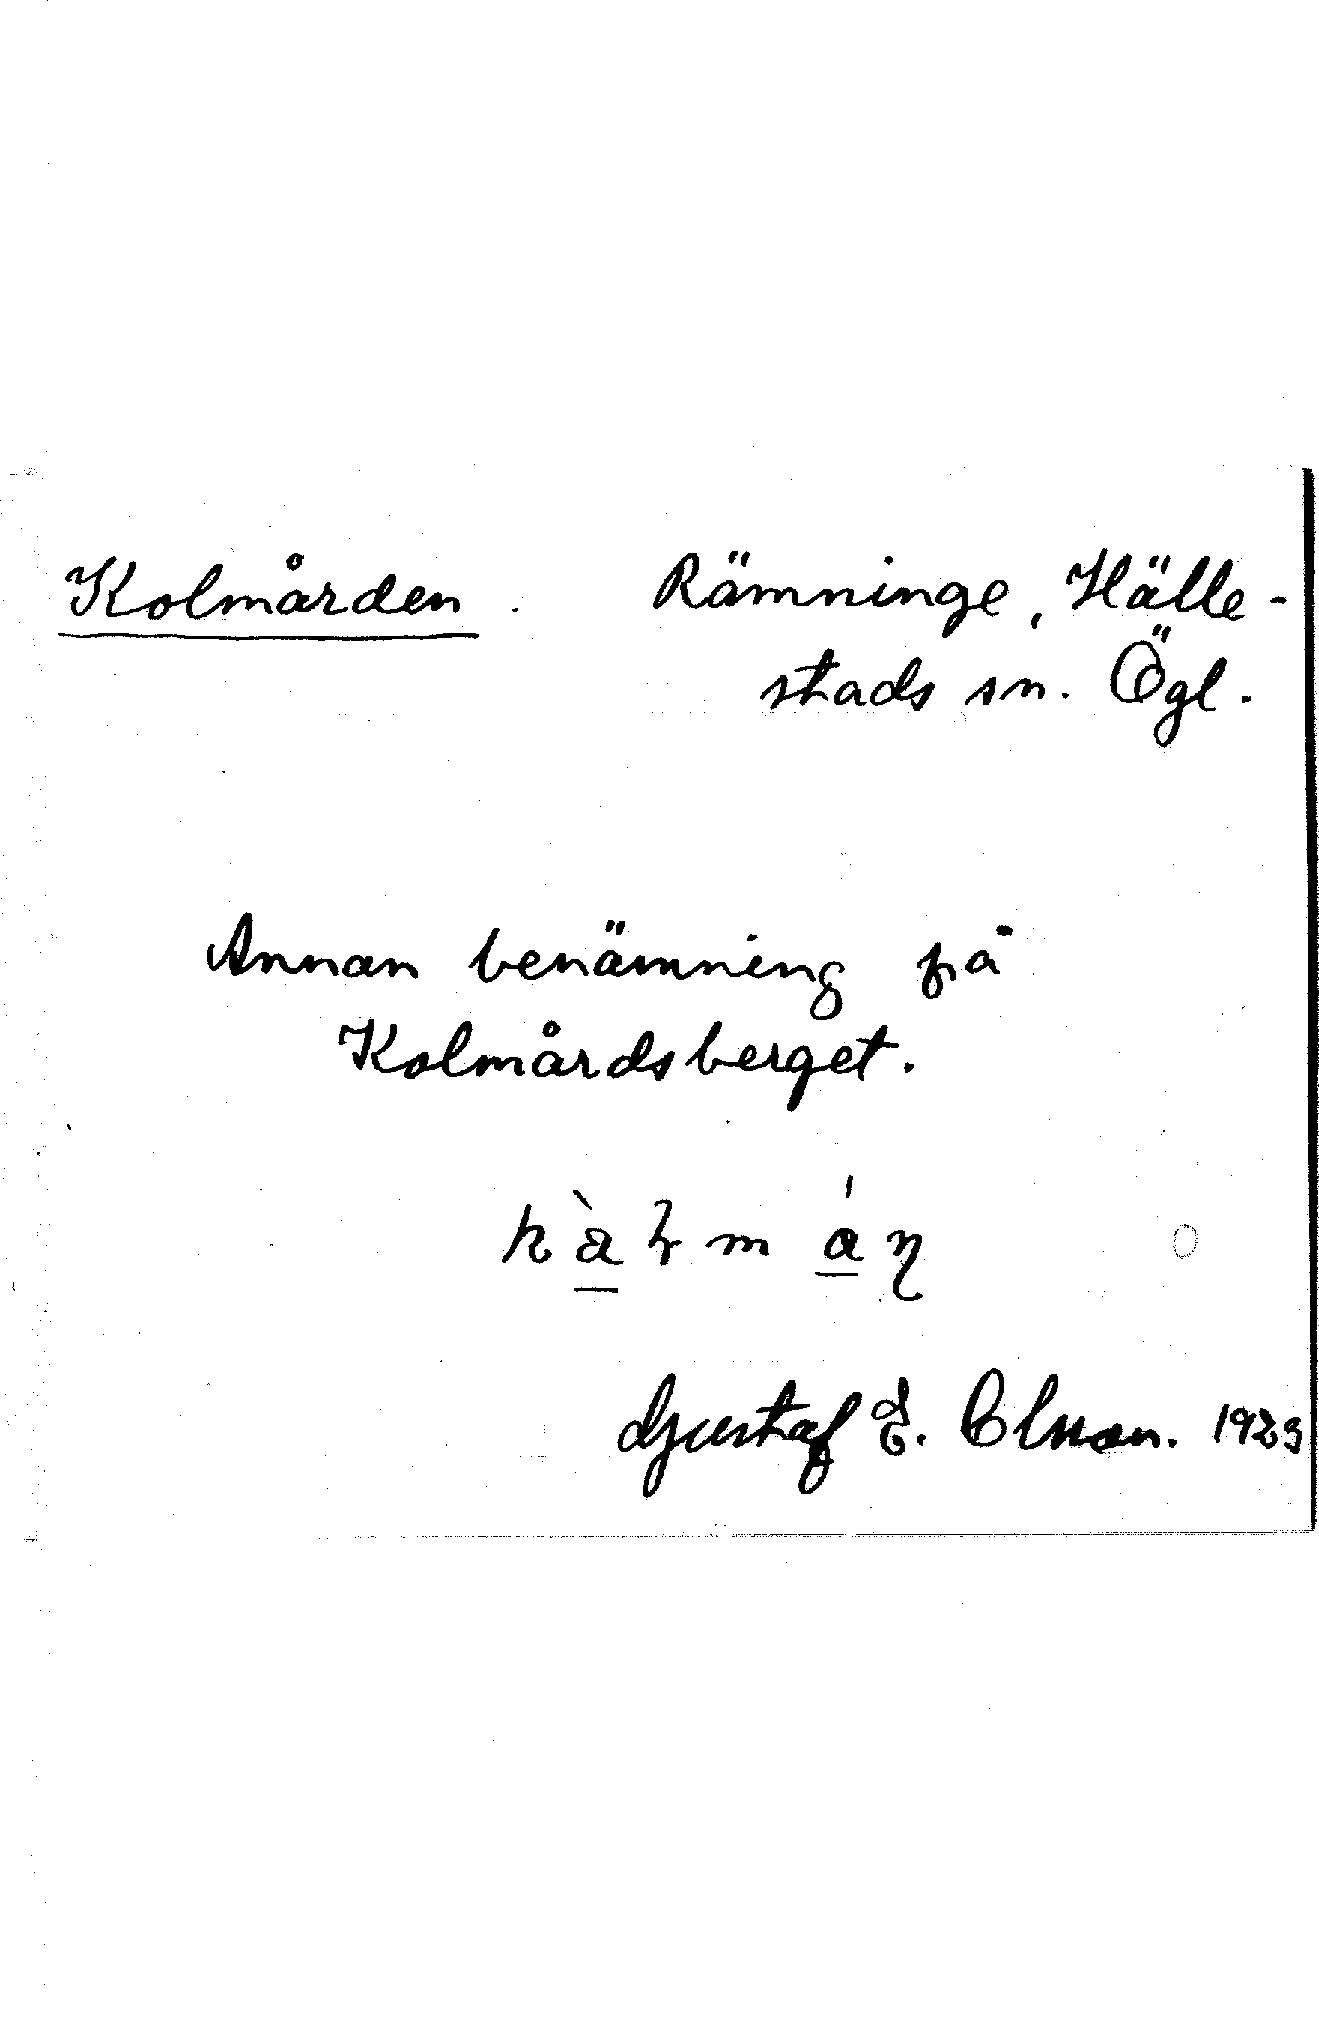 Kolmården. Rämninge, Hälle-
stads sn. Ögl.
Annan benämning på
Kolmårdsberget.
Gustaf E. Olsson. 1923